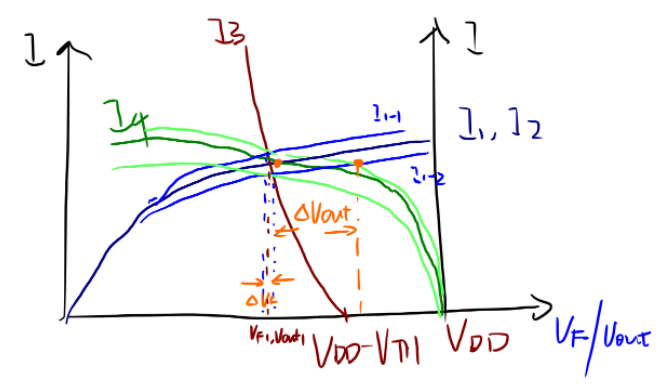 I3
I
I
I4
I1-1
I1, I2
I1-2
ΔVout
VF1, Vout1
VDD-VTH
VDD
VF/Vout